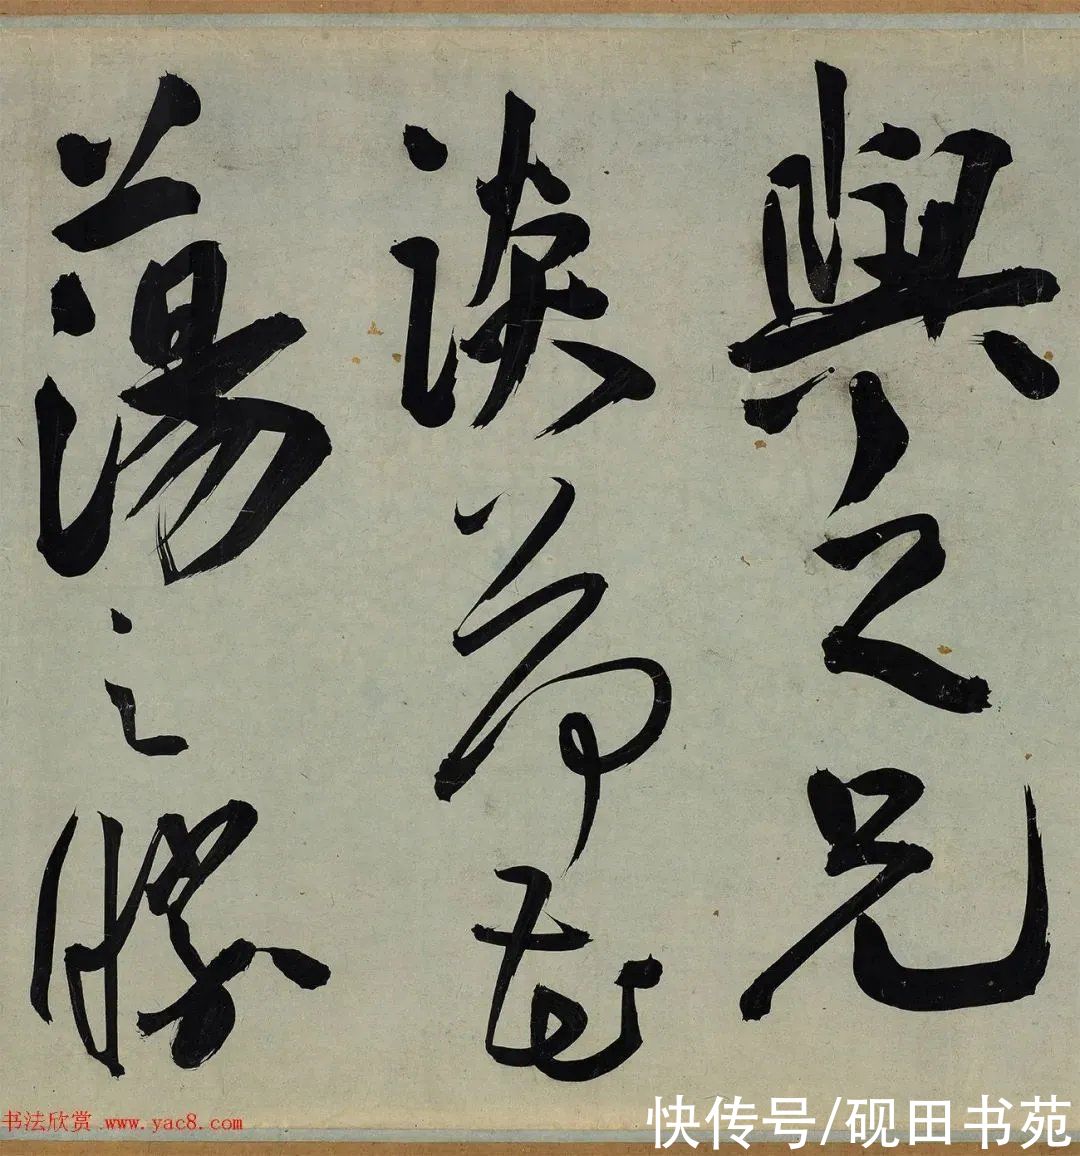 與之兄
談荷花
蕩之勝
书法欣赏 www.yac8.com
快传号/砚田书苑